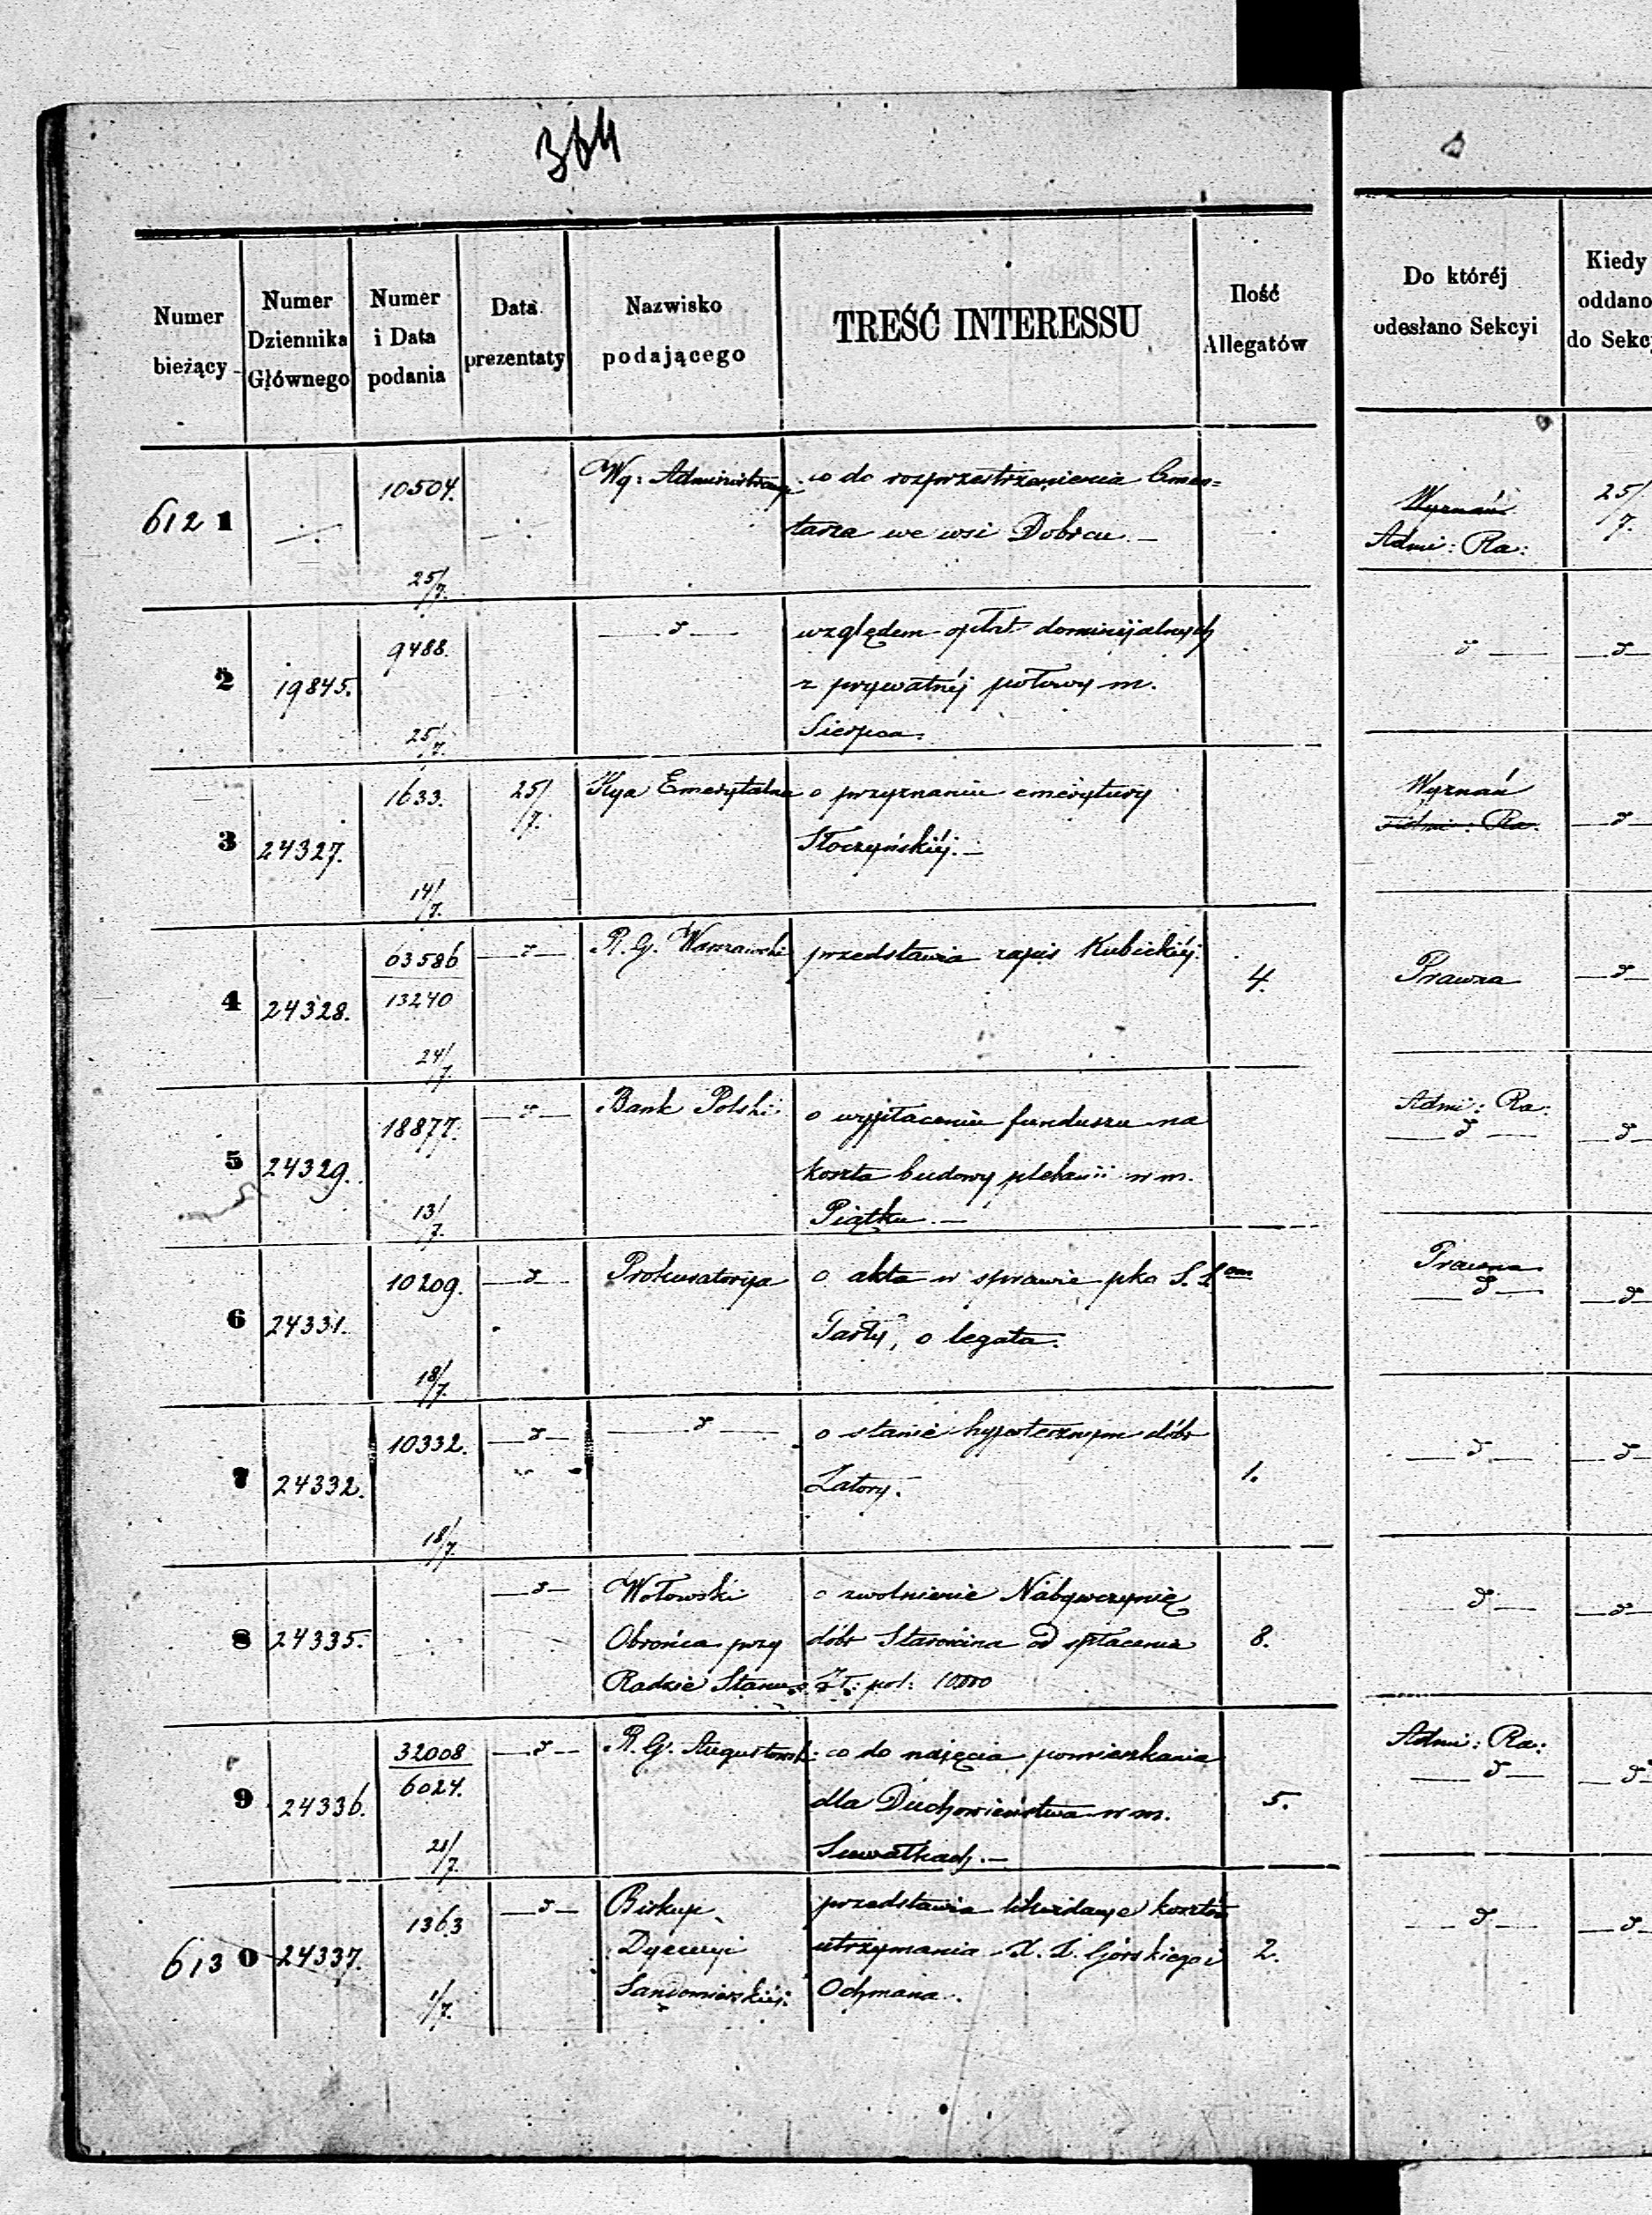 364
Numer bieżący
Numer Dziennika Głównego
Numer i Data podania
Data prezentaty
Nazwisko podającego
TREŚĆ INTERESSU
Ilość Allegatów
Do któréj odesłano Sekcyi
Kiedy oddano do Sekc
6121
10504.
25/7.
Wy: Administracyi
co do rozprzestrzenienia Cmen=
tarza we wsi Dobrcu.—
Wyznań
Admi: Ra:
25/7.
2
19845.
9488.
25/7.
—d—
względem opłat dominijalnych
z prywatnéj połowy m.
Sierpca.
—d—
—d—
3
24327.
1633.
14/7.
25/7.
Kya Emerytalna
o przyznaniu emerytury
Słoczyńskiéj.—
Wyznań
Admi: Ra:
—d—
4
24328.
63586
13240
24/7.
—d—
R. G. Warszawski
przedstawia zapis Kubickiéj.
4.
Prawna
—d—
5
24329.
18877.
13/7.
—d—
Bank Polski
o wypłaceniu funduszu na
koszta budowy plebanii w m.
Piątku.—
Admi: Ra:
—d—
—d—
6
24331.
10209.
18/7.
—d—
Prokuratorya
o akta w sprawie pko S.
Tarły, o legata.
Prawna
—d—
—d—
7
24332.
10332.
18/7.
—d—
—d—
o stanie hypotecznym dóbr
Zatory.
1.
—d—
—d—
8
24335.
—d—
Wołowski
Obrońca przy
Radzie Stanu
o zwolnienie Nabywczynię
dóbr Starocina od spłacenia
Zł: pol: 10000
8.
—d—
—d—
9
24336.
32008
6024.
21/7.
—d—
R. G. Augustowsk:
co do najęcia pomieszkania
dla Duchowieństwa w m.
Suwałkach.—
5.
Admi: Ra:
—d—
—d—
6130
24337.
1363
1/7.
—d—
Biskup
Dyecezyi
Sandomierskiéj.
przedstawia likwidacye kosztów
utrzymania X. X. Górskiego i
Ochmana.
2.
—d—
—d—